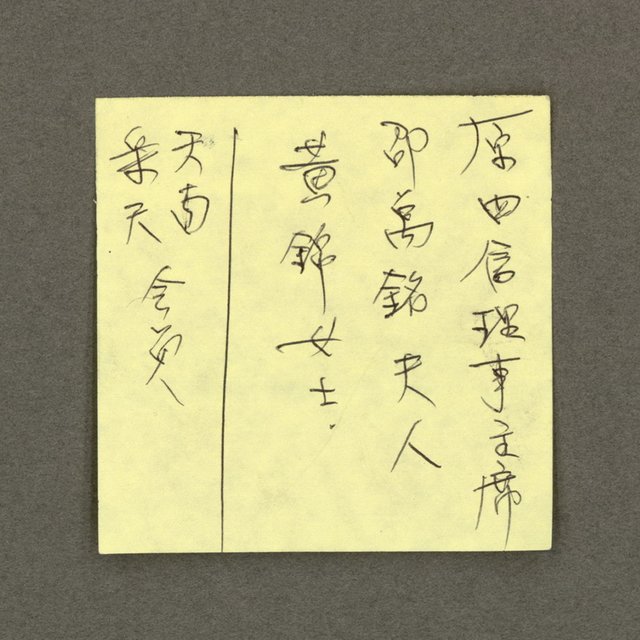 原四信理事主席
邵萬銘夫人
黃錦女士.
天南
采天
会員